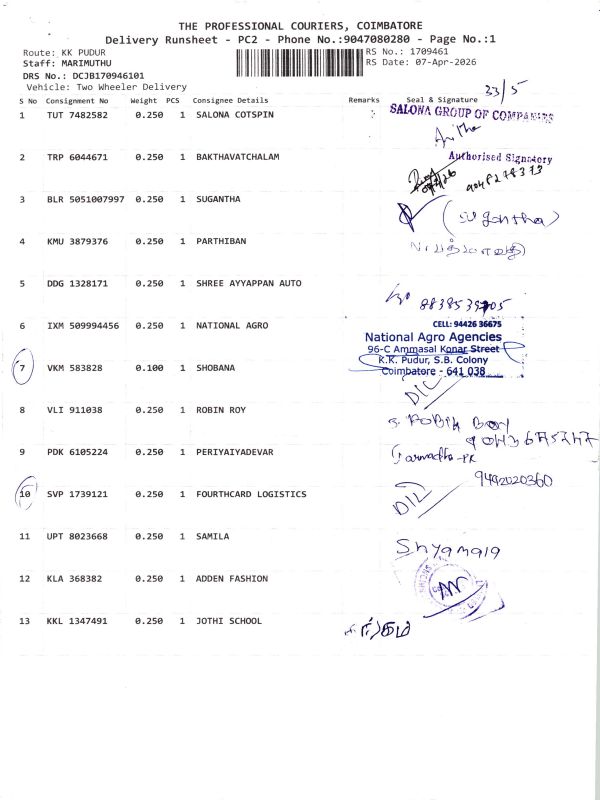 THE PROFESSIONAL COURIERS, COIMBATORE
Delivery Runsheet - PC2 - Phone No.:9047080280 - Page No.:1
Route: KK PUDUR RS No.: 1709461
Staff: MARIMUTHU RS Date: 07-Apr-2026
DRS No.: DCJB170946101
Vehicle: Two Wheeler Delivery
33/5
S No Consignment No Weight PCS Consignee Details Remarks Seal & Signature
1 TUT 7482582 0.250 1 SALONA COTSPIN SALONA GROUP OF COMPANIES
Anitha
Authorised Signatory
2 TRP 6044671 0.250 1 BAKTHAVATCHALAM
3 BLR 5051007997 0.250 1 SUGANTHA (Sugantha)
4 KMU 3879376 0.250 1 PARTHIBAN
5 DDG 1328171 0.250 1 SHREE AYYAPPAN AUTO
6 IXM 509994456 0.250 1 NATIONAL AGRO CELL: 94426 36675
National Agro Agencies
96-C Ammasal Konar Street
K.K. Pudur, S.B. Colony
Coimbatore - 641 038
7 VKM 583828 0.100 1 SHOBANA D/L
8 VLI 911038 0.250 1 ROBIN ROY
9 PDK 6105224 0.250 1 PERIYAIYADEVAR
9442020360
10 SVP 1739121 0.250 1 FOURTHCARD LOGISTICS D/L
11 UPT 8023668 0.250 1 SAMILA Shyamala
12 KLA 368382 0.250 1 ADDEN FASHION
13 KKL 1347491 0.250 1 JOTHI SCHOOL